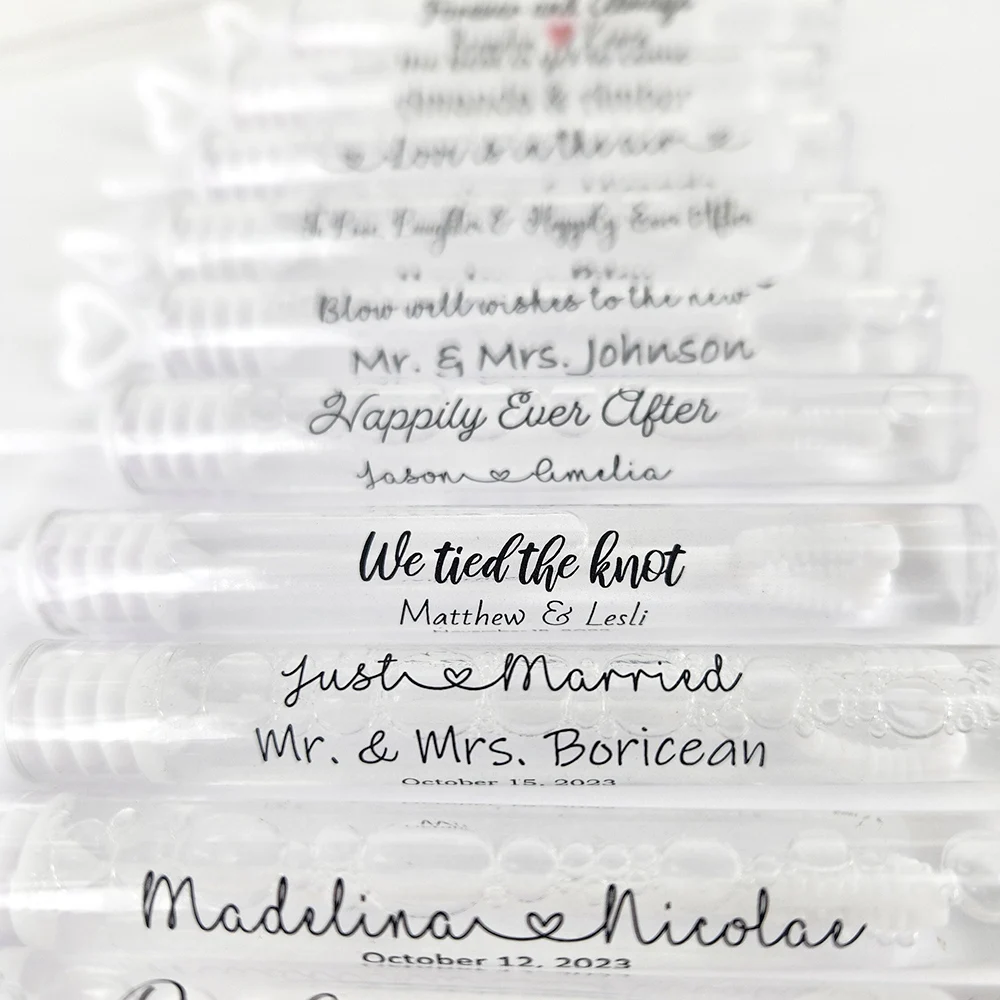 Forever and Always
Amanda & Amber
Love is in the air
& Happily Ever After
Blow well wishes to the new
Mr. & Mrs. Johnson
Happily Ever After
Jason Amelia
We tied the knot
Matthew & Lesli
Just Married
Mr. & Mrs. Boricean
October 15, 2023
Madelina Nicolae
October 12, 2023